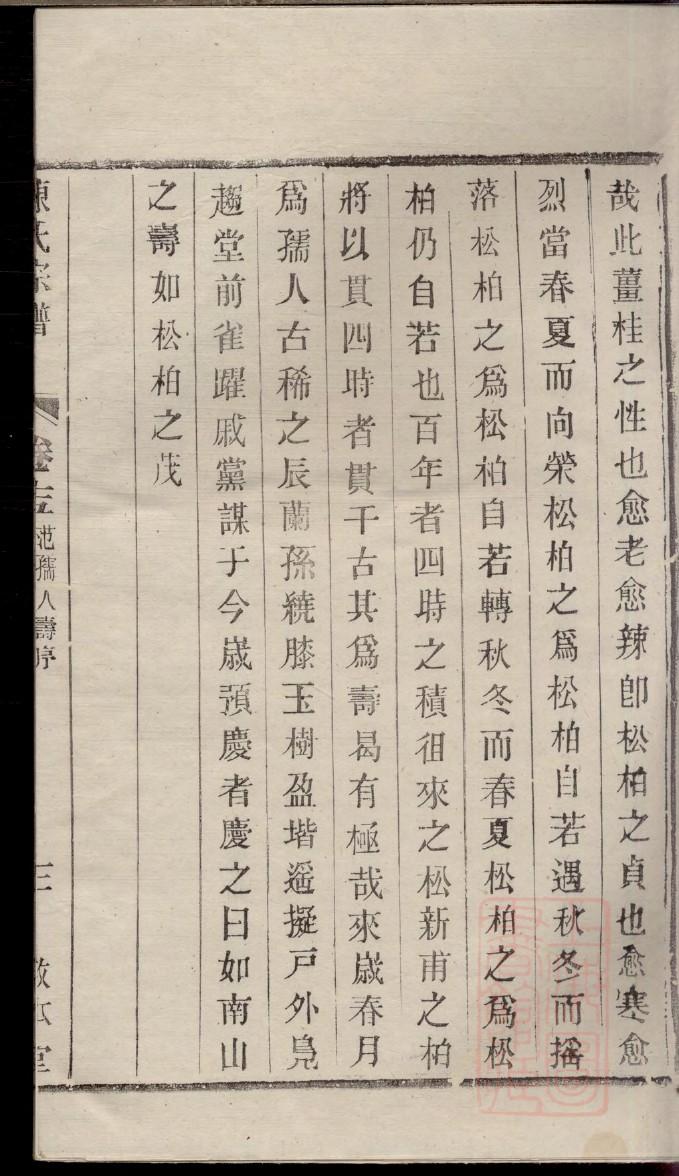 哉此薑桂之性也愈老愈辣卽松柏之貞也愈寒愈
烈當春夏而向榮松柏之爲松柏自若遇秋冬而搖
落松柏之爲松柏自若轉秋冬而春夏松柏之爲松
柏仍自若也百年者四時之積徂來之松新甫之柏
將以貫四時者貫千古其爲壽曷有極哉來歲春月
爲孺人古稀之辰蘭孫繞膝玉樹盈堦遥擬戸外凫
趨堂前雀躍戚黨謀于今歲預慶者慶之曰如南山
之壽如松柏之茂
陳氏宗譜
卷 范孺人壽序
三 敬本堂